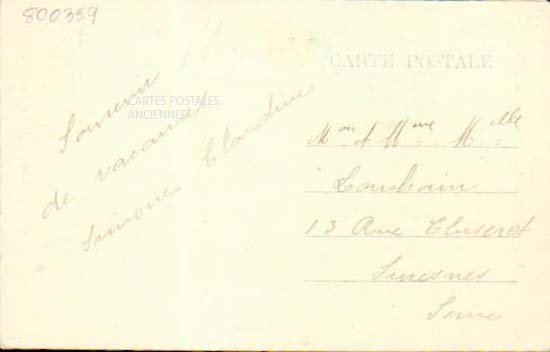 800359
CARTE POSTALE
CARTES POSTALES
ANCIENNES
Souvenir
de vacances
Simone Claudine
Mon et Mme Melle
13 Rue Cluseret
Suresnes
Seine